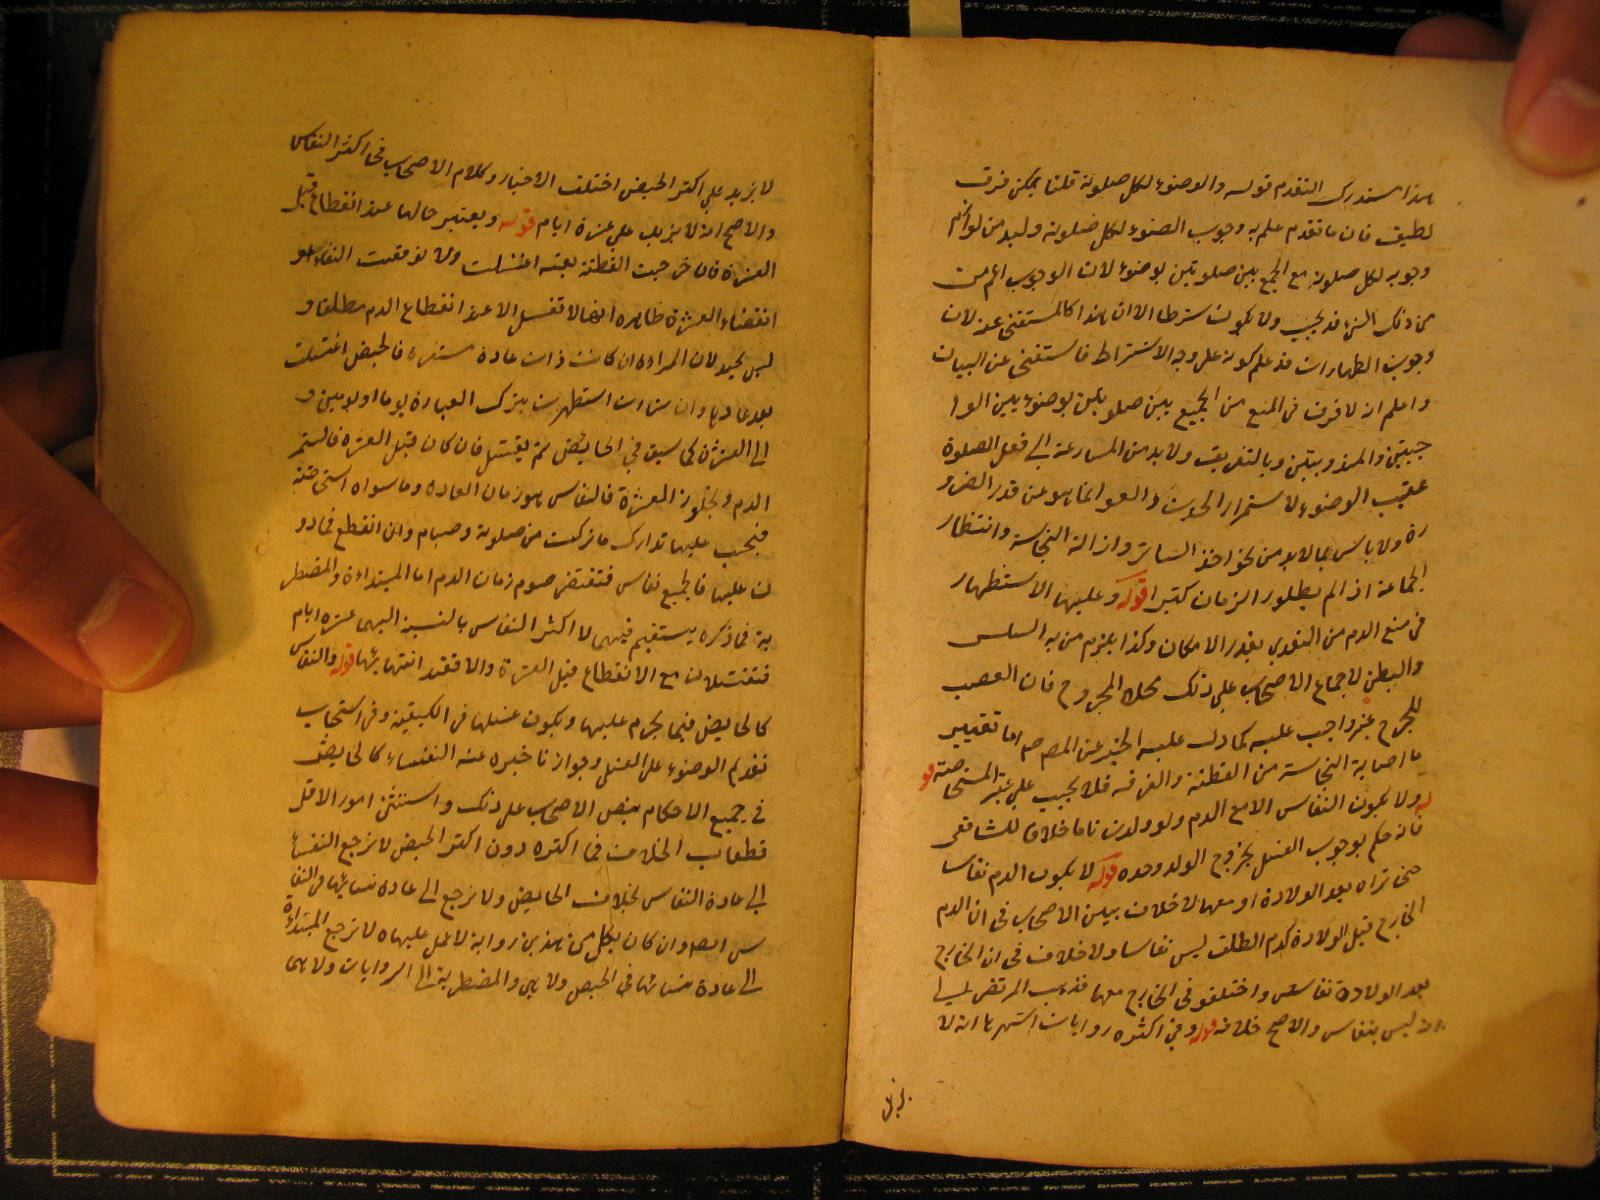 هذا مستدرك التقدم قوله والوضوء لكل صلوة قلنا يمكن فرق
لطيف فان ما تقدم علم به وجوب الوضوء لكل صلوة وليس من لوازم
وجوبه لكل صلوة منع الجمع بين صلوتين بوضوء لان الوجوب اعم من
من ذلك الشيء قد يجب ولا يكون شرطا الا ان هذا كالمستغنى عنه لان
وجوب الطهارات قد علم كونه على وجه الاشتراط فاستغنى عن البيان
واعلم انه لا فرق في المنع من الجمع بين صلوتين بوضوء بين الوا
جبتين والمندوبتين وبالتفريق ولا بد من المسارعة الى فعل الصلوة
عقيب الوضوء لاستمرار الحدث والعفو انما هو عن قدر الضرو
رة ولا باس بما لا بد من نحو اخذ الساتر وازالة النجاسة وانتظار
الجماعة اذا لم يطل الزمان كثيرا قوله وعليها الاستظهار
في منع الدم من التعدي بقدر الامكان وكذا يلزم من به السلس
والبطن لاجماع الاصحاب على ذلك بخلاف المجروح فان العصب
للجرح غير واجب عليه كما دلت عليه الخبر عن اما تغيير
ما اصابة النجاسة من القطنة والخرقة فلا يجب على غير المستحاضة قو
له ولا يكون النفاس الا مع الدم ولو ولدت تاما خلافا للشافعي
فانه حكم بوجوب الغسل بخروج الولد وحده قوله لا يكون الدم نفاسا
حتى تراه بعد الولادة او معها لا خلاف بين الاصحاب في ان الدم
الخارج قبل الولادة كدم الطلق ليس نفاسا ولا خلاف في ان الخارج
بعد الولادة نفاس واختلفوا في الخارج معها فذهب المرتضى الى
انه ليس بنفاس والاصح خلافه قوله وفي اكثره روايات اشهرها انه لا
لا يزيد على اكثر الحيض اختلف الاخبار وكلام الاصحاب في اكثر النفاس
والاصح انه لا يزيد على عشرة ايام قوله ويعتبر حالها عند انقطاع قبل
العشرة فان خرجت القطنة نقية اغتسلت والا توقعت النقاء او
انقضاء العشرة ظاهره انها لا تغسل الا عند انقطاع الدم مطلقا و
ليس بجيد لان المراءة ان كانت ذات عادة مستقرة فالحيض اغتسلت
بعد عادتها وان شاءت استظهرت بترك العبادة يوما او يومين و
الى العشرة كما سبق في الحائض ثم يغتسل فان كان قبل العشرة فاستمر
الدم وتجاوز العشرة فالنفاس هو زمان العادة وما سواه استحاضة
فيجب عليها تدارك ما تركت من صلوة وصيام وان انقطع فما دو
ن عليها فالجميع نفاس فتقضي صوم زمان الدم اما المبتداءة والمضطر
بة فما ذكره يستقيم فيهما لان اكثر النفاس بالنسبة اليهما عشرة ايام
فتغتسلان مع الانقطاع قبل العشرة والا فعند انتهائها قوله والنفاس
كالحائض فيما يحرم عليها ويكون غسلها في الكيفية وفي استحباب
تقديم الوضوء على الغسل وجواز تاخيره عنه النفساء كالحائض
في جميع الاحكام بنص الاصحاب على ذلك واستثنى امور الاقل
قطعا بـ الخلاف في اكثره دون اكثر الحيض لا ترجع النفساء
الى عادة النفاس بخلاف الحايض ولا ترجع الى عادة نسائها في النفا
س ايضا وان كان بكل من هذين رواية لا عمل عليها لا ترجع المبتداءة
الى عادة نسائها في الحيض ولا هي والمضطربة الى الروايات ولا هي